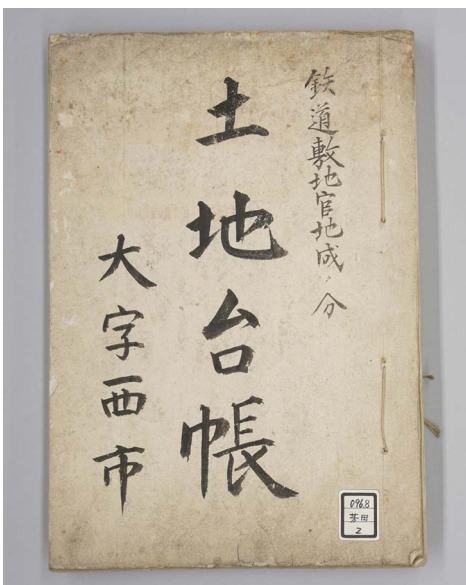 鉄道敷地官地成ノ分
土地台帳
大字西市
096.8
芳田
2